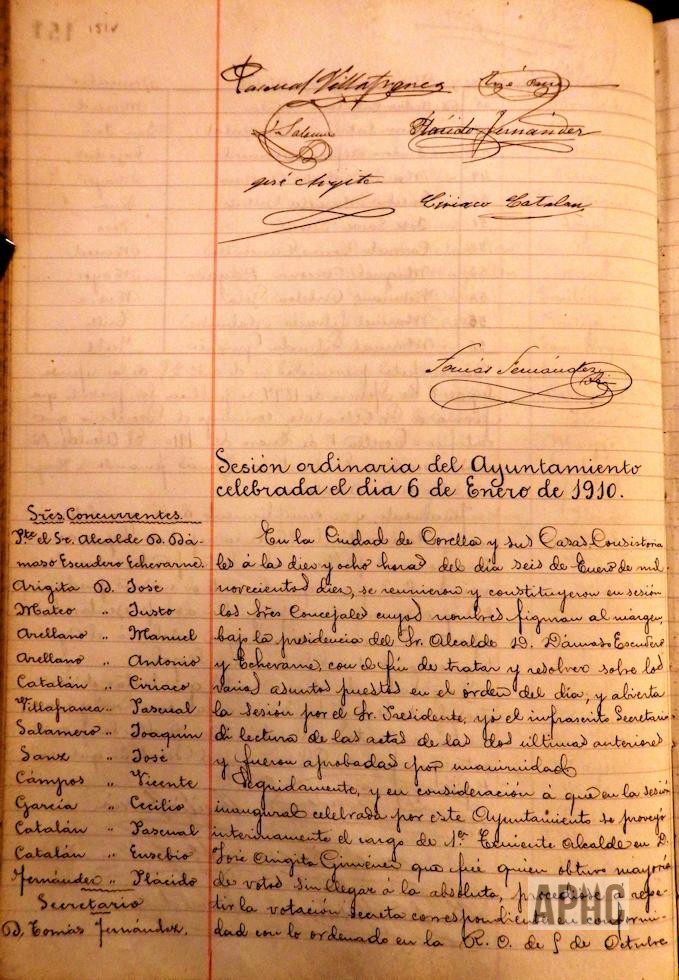 Pascual Villafranca
José Sanz
J. Salamero
Plácido Fernández
José Arigita
Ciriaco Catalán
Tomás Fernández
Srio
Sesión ordinaria del Ayuntamiento
celebrada el dia 6 de Enero de 1910.
Sres Concurrentes
Pte el Sr. Alcalde D. Dá-
maso Escudero Echevarne.
Arigita D. José
Mateo " Justo
Arellano " Manuel
Arellano " Antonio
Catalán " Ciriaco
Villafranca " Pascual
Salamero " Joaquín
Sanz " José
Cámpos " Vicente
García " Cecilio
Catalán " Pascual
Catalán " Eusebio
Fernández " Plácido
Secretario
D. Tomás Fernández.
En la Ciudad de Corella y sus Casas Consistoria
les á las diez y ocho horas del día seis de Enero de mil
novecientos diez, se reunieron y constituyeron en sesión
los Sres Concejales cuyos nombres figuran al margen,
bajo la presidencia del Sr. Alcalde D. Dámaso Escudero
y Echevarne, con el fin de tratar y resolver sobre los
varios asuntos puestos en el órden del día, y abierta
la sesión por el Sr. Presidente, yó el infrascrito Secretario
dí lectura de las actas de las dos últimas anteriores
y fueron aprobadas por unanimidad.
Seguidamente, y en consideración á que en la sesión
inaugural celebrada por este Ayuntamiento se proveyó
interinamente el cargo de 1er Teniente Alcalde en D.
José Arigita Giménez que fué quien obtuvo mayoría
de votos sin llegar á la absoluta, procedióse á repe-
tir la votación secreta correspondiente en conformi-
dad con lo ordenado en la R. O. de 5 de Octubre
APHC